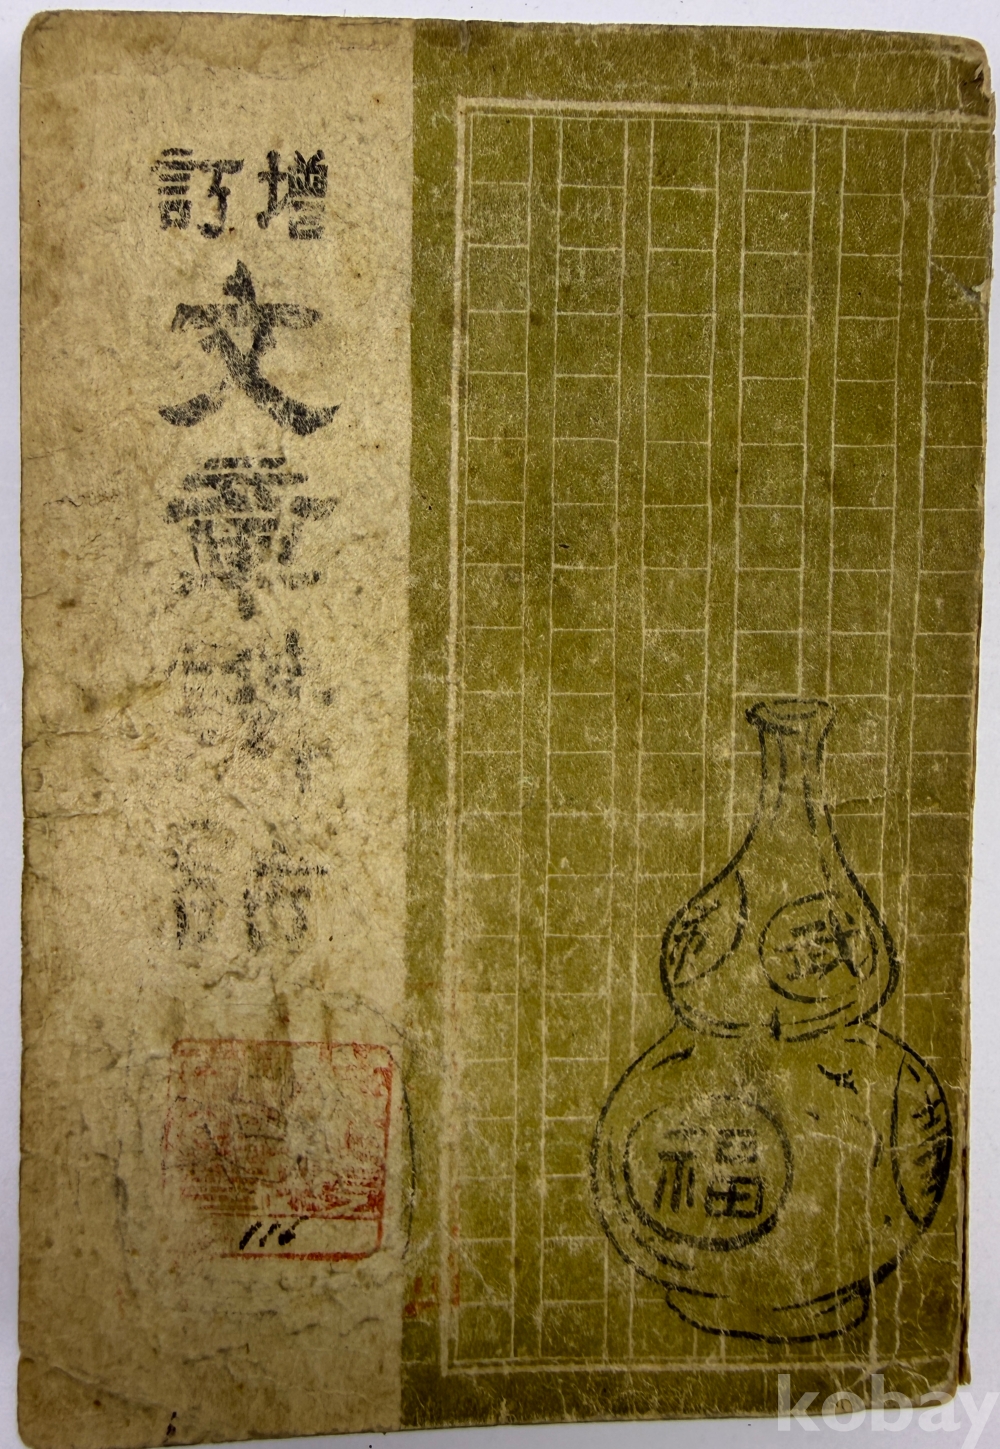 增訂
文章講話
福
116
kobay